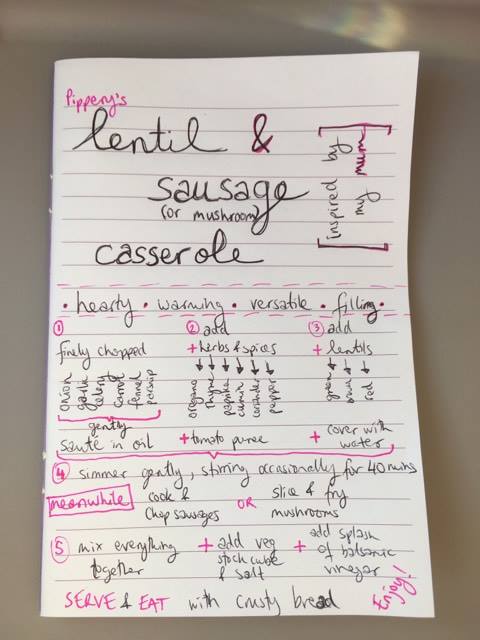 Pippery's
lentil &
sausage
(or mushroom)
casserole
[inspired by
my mum]
• hearty • warming • versatile • filling •
① finely chopped
onion
garlic
celery
carrot
fennel
parsnip
gently
sauté in oil
② add
+ herbs & spices
oregano
thyme
paprika
cumin
coriander
pepper
+ tomato puree
③ add
+ lentils
green
brown
red
+ cover with
water
④ simmer gently, stirring occasionally for 40 mins
meanwhile
cook &
chop sausages
OR
slice & fry
mushrooms
⑤ mix everything
together
+ add veg
stock cube
& salt
+ add splash
of balsamic
vinegar
SERVE & EAT with crusty bread
Enjoy!